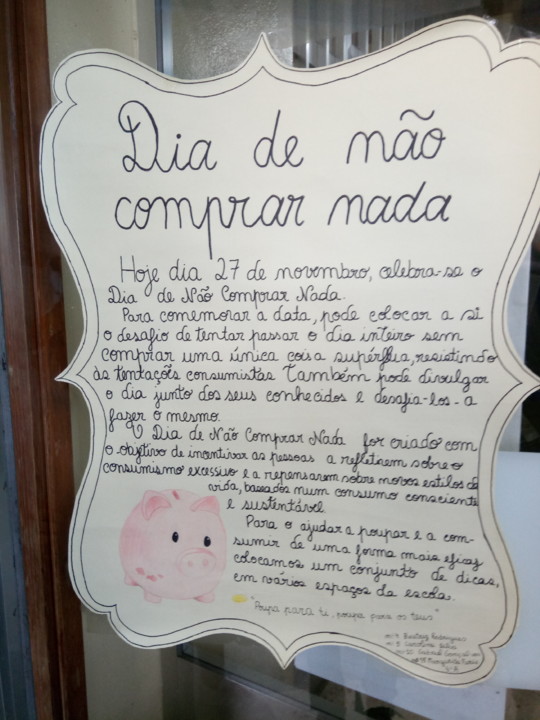 Dia de não
comprar nada
Hoje dia 27 de novembro, celebra-se o
Dia de Não Comprar Nada.
Para comemorar a data, pode colocar a si
o desafio de tentar passar o dia inteiro sem
comprar uma única coisa supérflua, resistindo
às tentações consumistas. Também pode divulgar
o dia junto dos seus conhecidos e desafia-los-a
fazer o mesmo.
O Dia de Não Comprar Nada foi criado com
o objetivo de incentivar as pessoas a refletirem sobre o
consumismo excessivo e a repensarem sobre novos estilos de
vida, baseados num consumo consciente
e sustentável.
Para o ajudar a poupar e a con-
sumir de uma forma mais eficaz
colocamos um conjunto de dicas,
em vários espaços da escola.
"Poupa para ti, poupa para os teus"
Beatriz Rodrigues
Carolina
Gabriel Gonçalves
Margarida